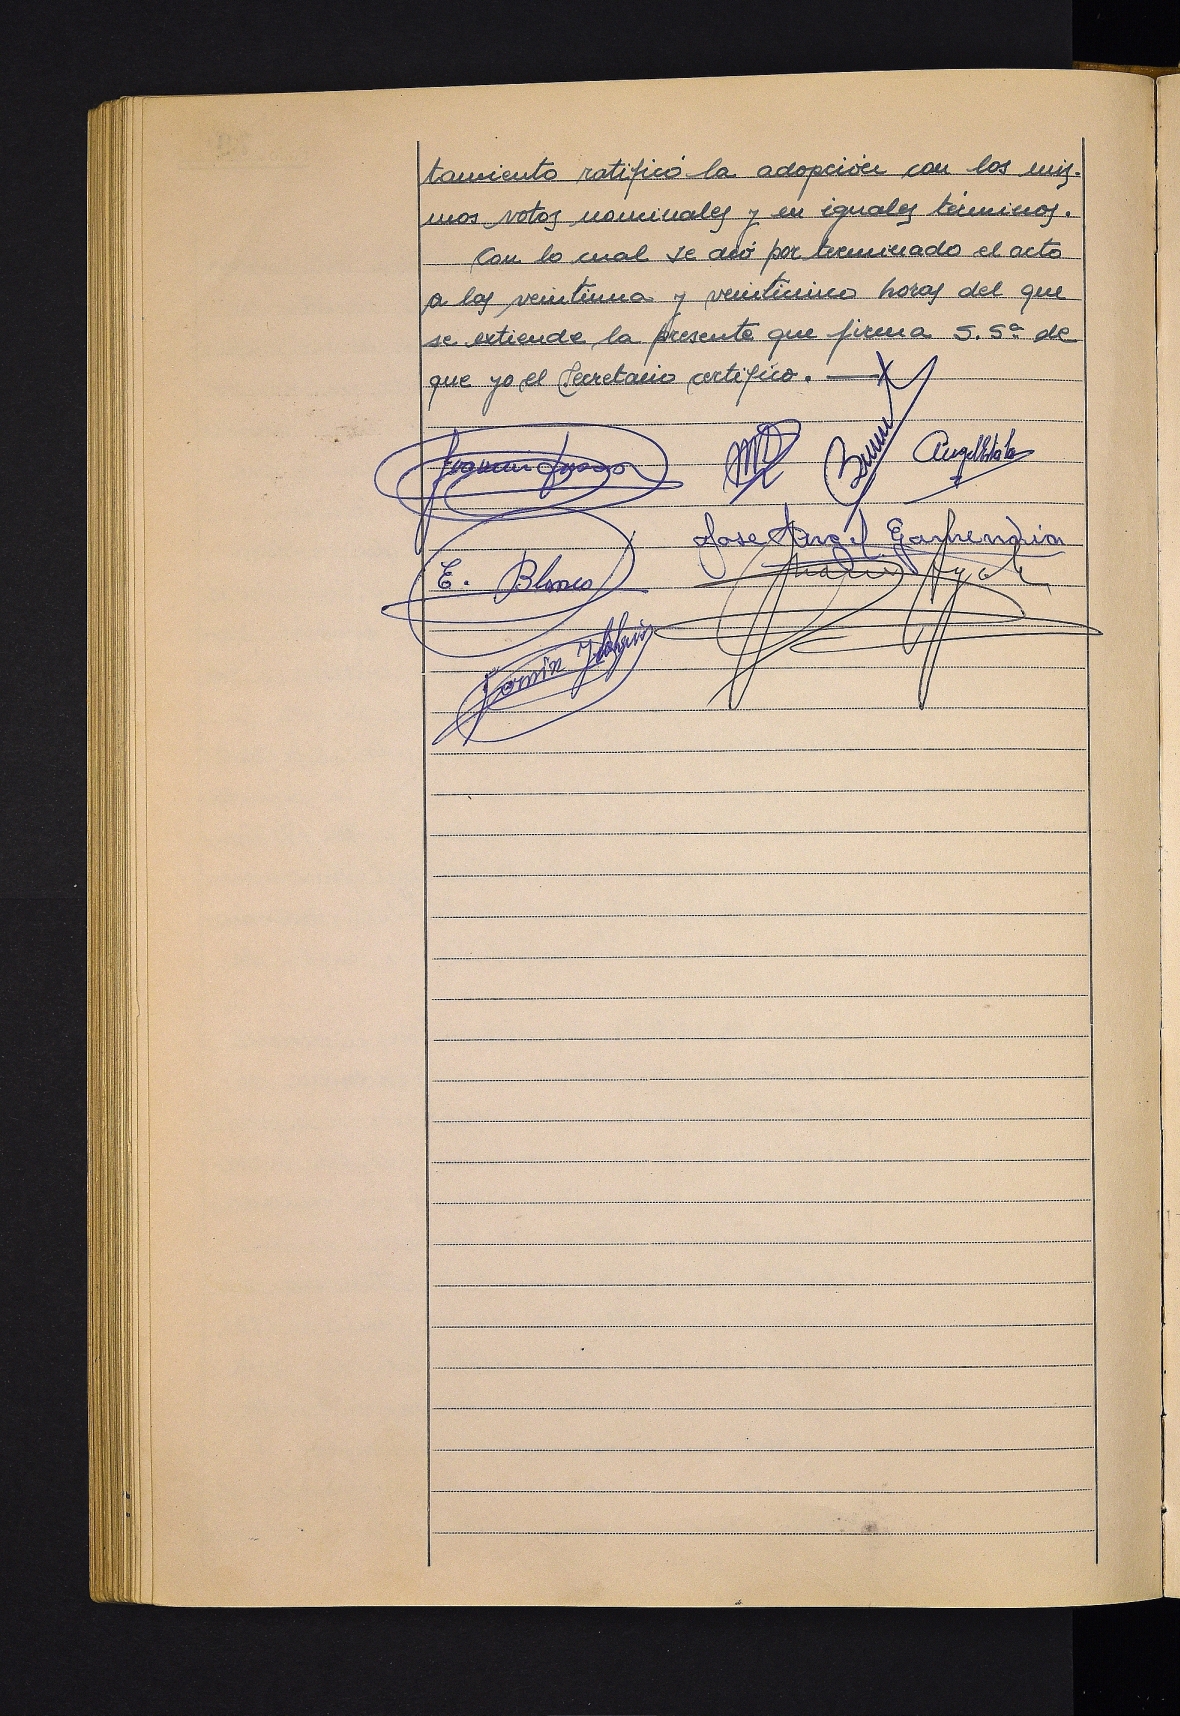 tamiento ratificó la adopción con los mis-
mos votos nominales y en iguales términos.
Con lo cual se dió por terminado el acto
a las veintiuna y veinticinco horas del que
se extiende la presente que firma S. Sª de
que yo el Secretario certifico.
Angel
E. Blanco
Jose Angel
Fermín